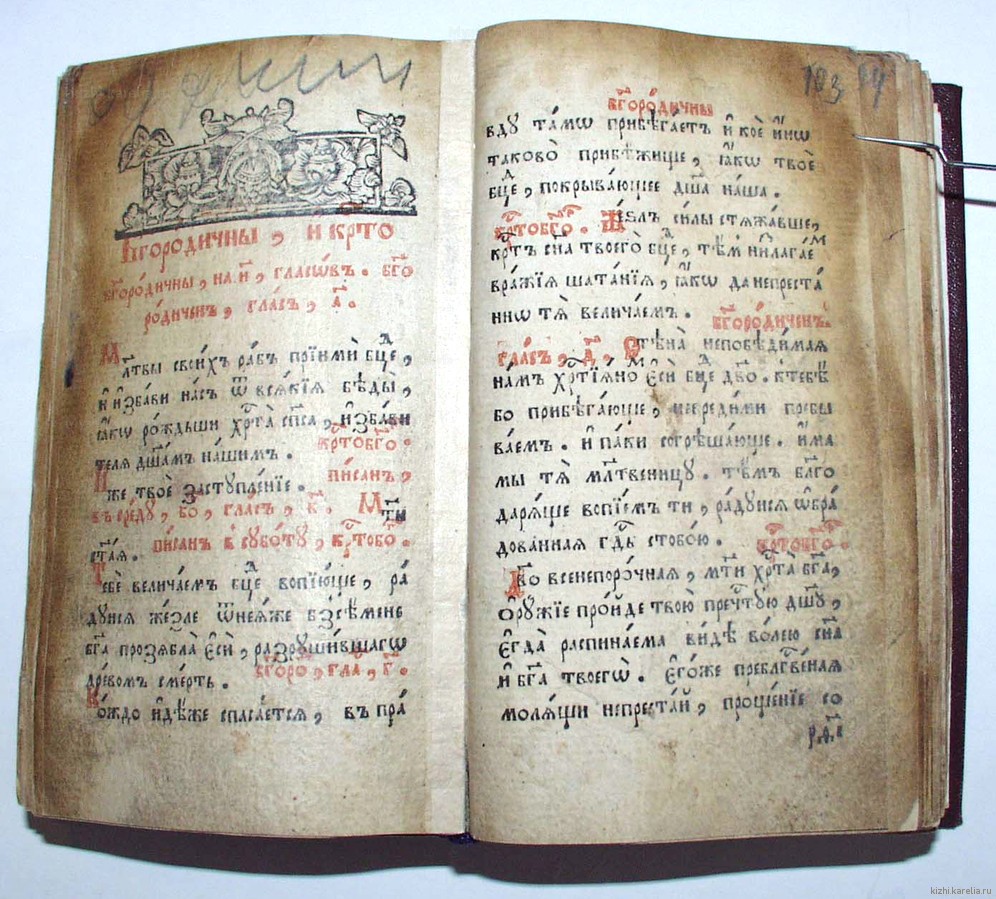 Бг҃оро́дичны , и҆ крⷭ҇то
бг҃оро́дичны , на. и҃ , гла́сѡвъ . бг҃о
ро́диченъ , гла́съ , а҃ .
Мл҃твы свои́хъ ра́бъ прїимѝ бцⷣе ,
и҆ и҆зба́ви на́съ ѿ вся́кїѧ бѣды̀ ,
ꙗ҆́кѡ ро́ждьши хрⷭ҇та̀ сп҃са , и҆зба́ви
теля дш҃а́мъ на́шимъ .
крⷭ҇тобг҃о .
И҆́же твоѐ заступле́нїе .
пи́санъ ,
въ сре́ду , бо , гла́съ , в҃ . Мт҃ы
ст҃а́ѧ . пи́санъ в суббо́ту , крⷭ҇тобо .
Тебѐ велича́емъ бцⷣе вопїю́ще , ра́
дуися же́зле ѿнеѧ́же без̾ сѣ́мене
бг҃а прозябла̀ є҆сѝ , разруши́вшагѡ
дре́вомъ сме́рть .
бг҃оро , гла́ , г҃ .
Ко́ждо и҆дѣ́же спаса́ется , въ пра́
бг҃оро́дичны
вду та́мѡ прибѣга́етъ и҆ ко́е и҆́нѡ
таково̀ прибѣ́жище , ꙗ҆́кѡ твоѐ
бцⷣе , покрыва́ющее дш҃а на́ша .
крⷭ҇тобг҃о . Же́злъ си́лы стяжа́вше ,
крⷭ҇тъ сн҃а твоего̀ бцⷣе , тѣ́м низлага́еⷨ
вра́жїѧ шата́нїѧ , ꙗ҆́кѡ да непреста́
ннѡ тѧ̀ велича́емъ .
бг҃оро́диченъ .
гла́съ , д҃ , Стѣна̀ непобѣди́маѧ
на́мъ хрⷭ҇тїѧ́нѡⷨ є҆сѝ бцⷣе дв҃о . к тебѣ́
бо прибѣга́юще , невреди́ми пребы
ва́емъ . и҆ па́ки согрѣша́юще . и҆́ма
мы тѧ̀ мл҃твеницу . тѣ́мъ благо
даря́ще вопїе́мъ ти , ра́дуися ѡ҆бра́
дова́нная гдⷭ҇ь с тобо́ю .
крⷭ҇тобг҃о .
Дв҃о всенепоро́чная , мт҃и хрⷭ҇та̀ бг҃а ,
ѻ҆ру́жїе про́йде твою̀ пречⷭ҇тую дш҃у ,
є҆гда̀ распина́ема ви́дѣ во́лею сн҃а
и҆ бг҃а твоегѡ̀ . є҆го́же пребл҃гве́ная
моля́щи непреста́й , проще́нїе со